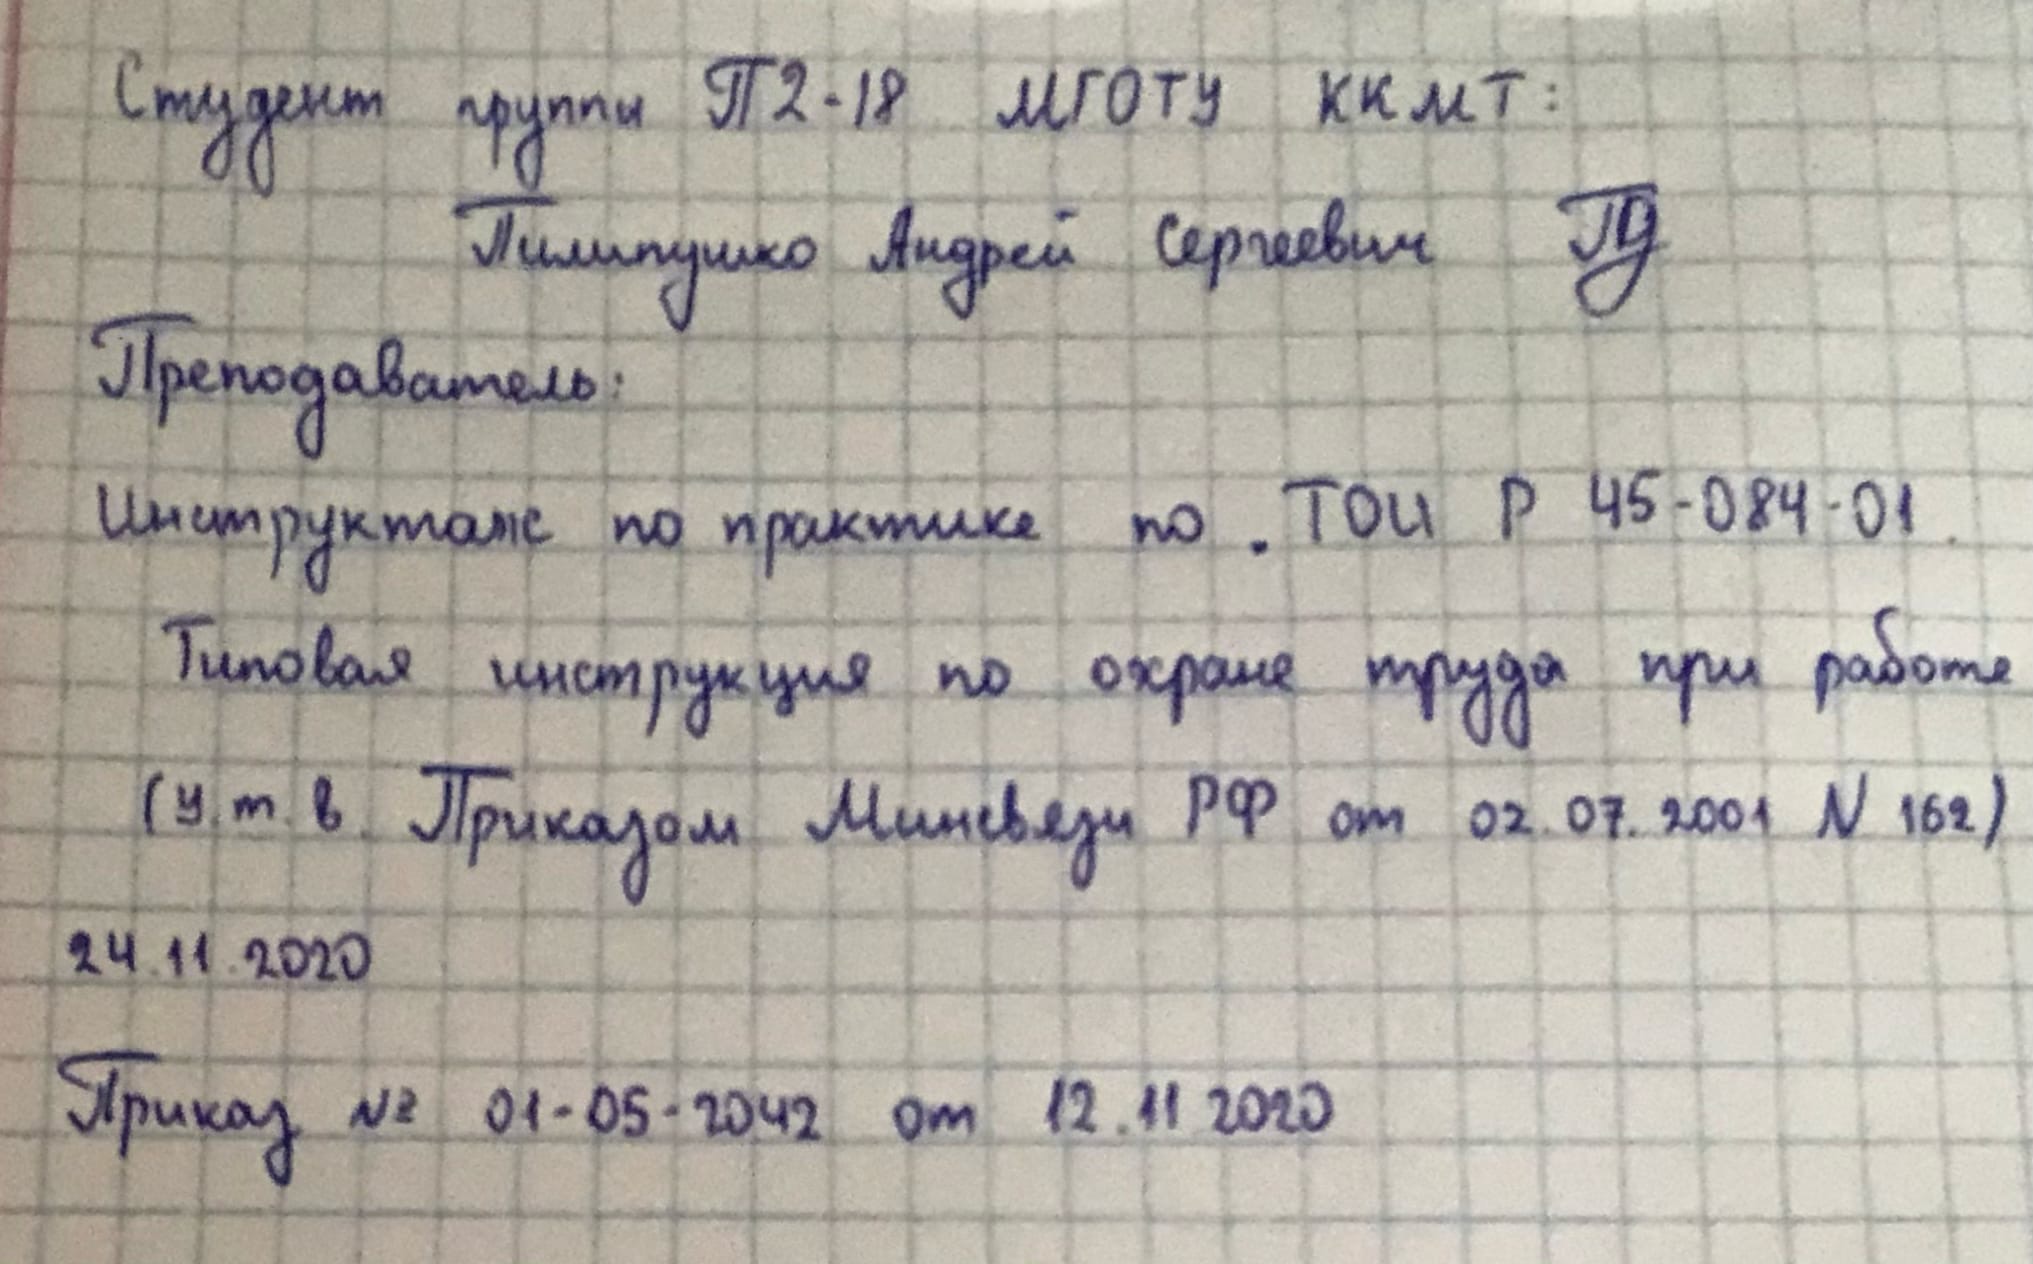 Студент группы П2-18 МГОТУ ККМТ:
Пилипушко Андрей Сергеевич
Преподаватель:
Инструктаж по практике по . ТОИ Р 45-084-01.
Типовая инструкция по охране труда при работе
(У.т.в. Приказом Минсвязи РФ от 02.07.2001 N 162)
24.11.2020
Приказ № 01-05-2042 от 12.11 2020